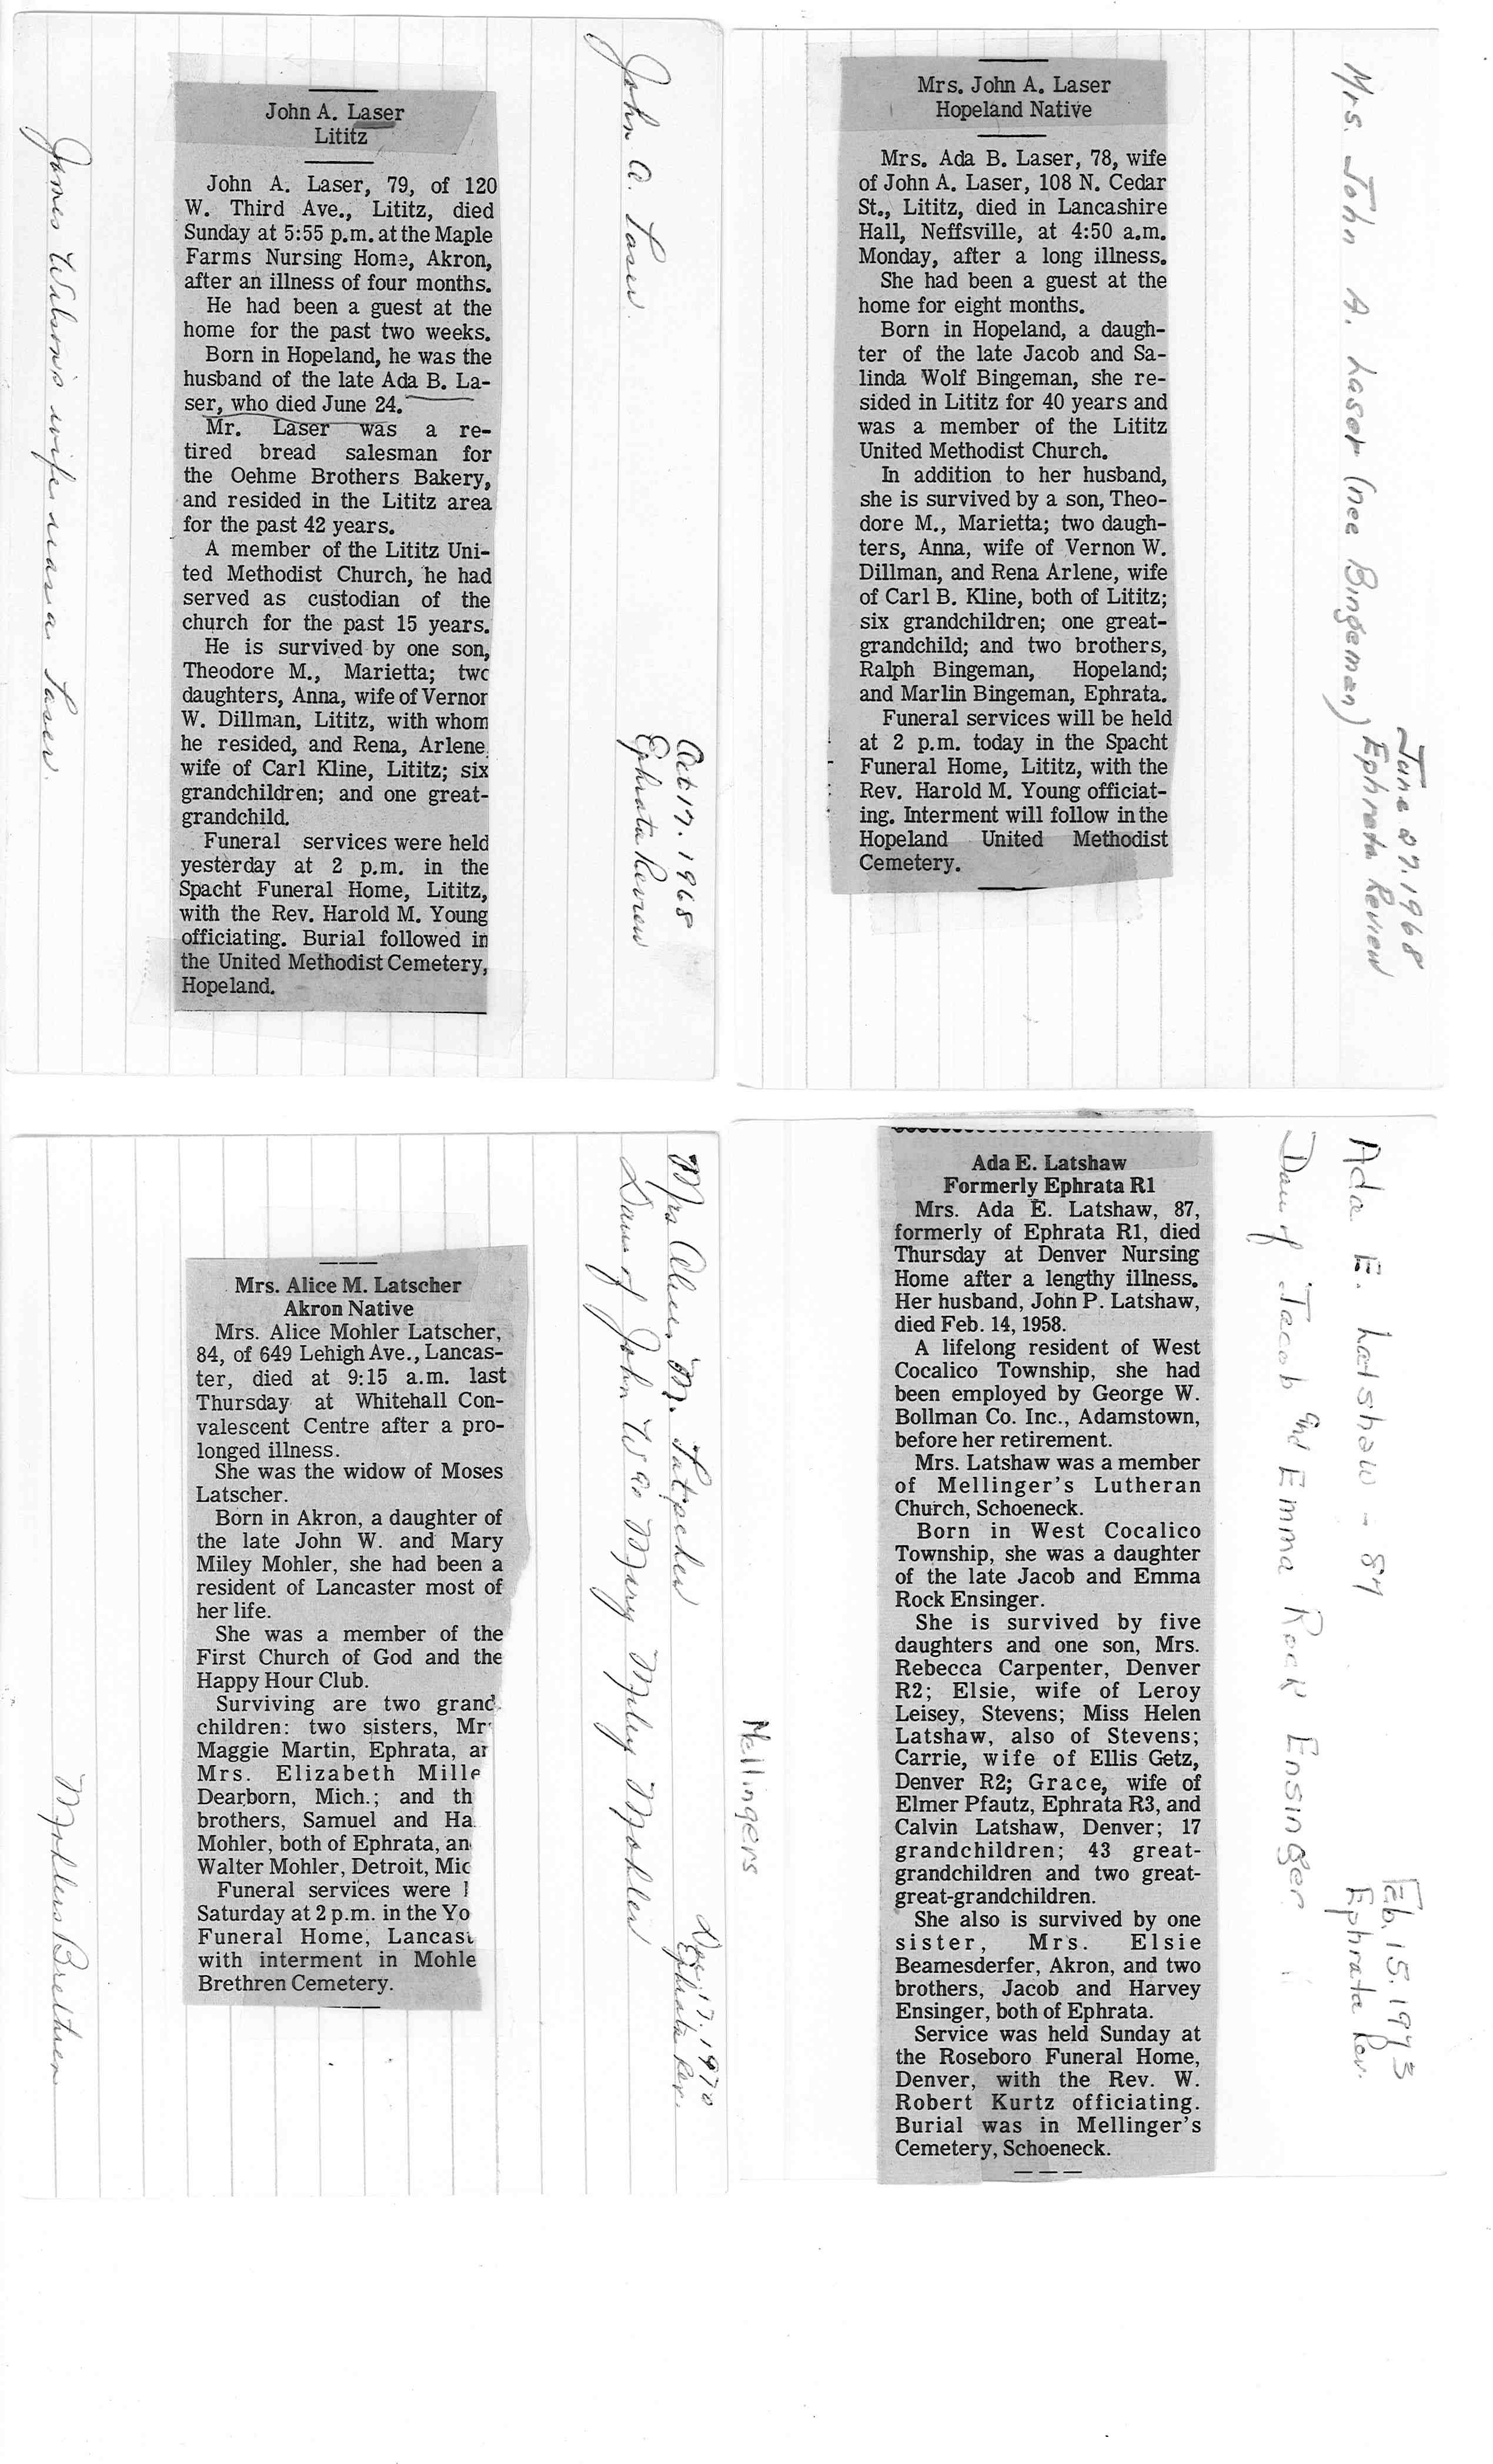 John A. Laser
Lititz
John A. Laser, 79, of 120
W. Third Ave., Lititz, died
Sunday at 5:55 p.m. at the Maple
Farms Nursing Home, Akron,
after an illness of four months.
He had been a guest at the
home for the past two weeks.
Born in Hopeland, he was the
husband of the late Ada B. La-
ser, who died June 24.
Mr. Laser was a re-
tired bread salesman for
the Oehme Brothers Bakery,
and resided in the Lititz area
for the past 42 years.
A member of the Lititz Uni-
ted Methodist Church, he had
served as custodian of the
church for the past 15 years.
He is survived by one son,
Theodore M., Marietta; two
daughters, Anna, wife of Vernon
W. Dillman, Lititz, with whom
he resided, and Rena, Arlene
wife of Carl Kline, Lititz; six
grandchildren; and one great-
grandchild.
Funeral services were held
yesterday at 2 p.m. in the
Spacht Funeral Home, Lititz,
with the Rev. Harold M. Young
officiating. Burial followed in
the United Methodist Cemetery,
Hopeland.
John A. Laser
Oct 17. 1968
Ephrata Review
James Wilson's wife was a Laser.
Mrs. John A. Laser
Hopeland Native
Mrs. Ada B. Laser, 78, wife
of John A. Laser, 108 N. Cedar
St., Lititz, died in Lancashire
Hall, Neffsville, at 4:50 a.m.
Monday, after a long illness.
She had been a guest at the
home for eight months.
Born in Hopeland, a daugh-
ter of the late Jacob and Sa-
linda Wolf Bingeman, she re-
sided in Lititz for 40 years and
was a member of the Lititz
United Methodist Church.
In addition to her husband,
she is survived by a son, Theo-
dore M., Marietta; two daugh-
ters, Anna, wife of Vernon W.
Dillman, and Rena Arlene, wife
of Carl B. Kline, both of Lititz;
six grandchildren; one great-
grandchild; and two brothers,
Ralph Bingeman, Hopeland;
and Marlin Bingeman, Ephrata.
Funeral services will be held
at 2 p.m. today in the Spacht
Funeral Home, Lititz, with the
Rev. Harold M. Young officiat-
ing. Interment will follow in the
Hopeland United Methodist
Cemetery.
Mrs. John A. Laser (nee Bingeman)
June 27. 1968
Ephrata Review
Mrs. Alice M. Latscher
Akron Native
Mrs. Alice Mohler Latscher,
84, of 649 Lehigh Ave., Lancas-
ter, died at 9:15 a.m. last
Thursday at Whitehall Con-
valescent Centre after a pro-
longed illness.
She was the widow of Moses
Latscher.
Born in Akron, a daughter of
the late John W. and Mary
Miley Mohler, she had been a
resident of Lancaster most of
her life.
She was a member of the
First Church of God and the
Happy Hour Club.
Surviving are two grand
children: two sisters, Mr
Maggie Martin, Ephrata, ar
Mrs. Elizabeth Mille
Dearborn, Mich.; and th
brothers, Samuel and Ha
Mohler, both of Ephrata, an
Walter Mohler, Detroit, Mic
Funeral services were
Saturday at 2 p.m. in the Yo
Funeral Home, Lancast
with interment in Mohle
Brethren Cemetery.
Mrs Alice M. Latscher
Dau of John W and Mary Miley Mohler
Dec. 17. 1970
Ephrata Rev.
Mohlers Brethren
Ada E. Latshaw
Formerly Ephrata R1
Mrs. Ada E. Latshaw, 87,
formerly of Ephrata R1, died
Thursday at Denver Nursing
Home after a lengthy illness.
Her husband, John P. Latshaw,
died Feb. 14, 1958.
A lifelong resident of West
Cocalico Township, she had
been employed by George W.
Bollman Co. Inc., Adamstown,
before her retirement.
Mrs. Latshaw was a member
of Mellinger's Lutheran
Church, Schoeneck.
Born in West Cocalico
Township, she was a daughter
of the late Jacob and Emma
Rock Ensinger.
She is survived by five
daughters and one son, Mrs.
Rebecca Carpenter, Denver
R2; Elsie, wife of Leroy
Leisey, Stevens; Miss Helen
Latshaw, also of Stevens;
Carrie, wife of Ellis Getz,
Denver R2; Grace, wife of
Elmer Pfautz, Ephrata R3, and
Calvin Latshaw, Denver; 17
grandchildren; 43 great-
grandchildren and two great-
great-grandchildren.
She also is survived by one
sister, Mrs. Elsie
Beamesderfer, Akron, and two
brothers, Jacob and Harvey
Ensinger, both of Ephrata.
Service was held Sunday at
the Roseboro Funeral Home,
Denver, with the Rev. W.
Robert Kurtz officiating.
Burial was in Mellinger's
Cemetery, Schoeneck.
Ada E. Latshaw - 87
Dau of Jacob and Emma Rock Ensinger
Feb. 15. 1973
Ephrata Rev.
Mellingers